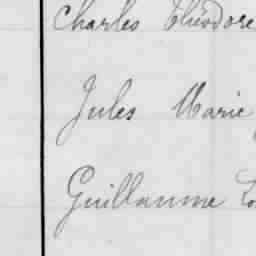 Charles Théodore
Jules Marie
Guillaume